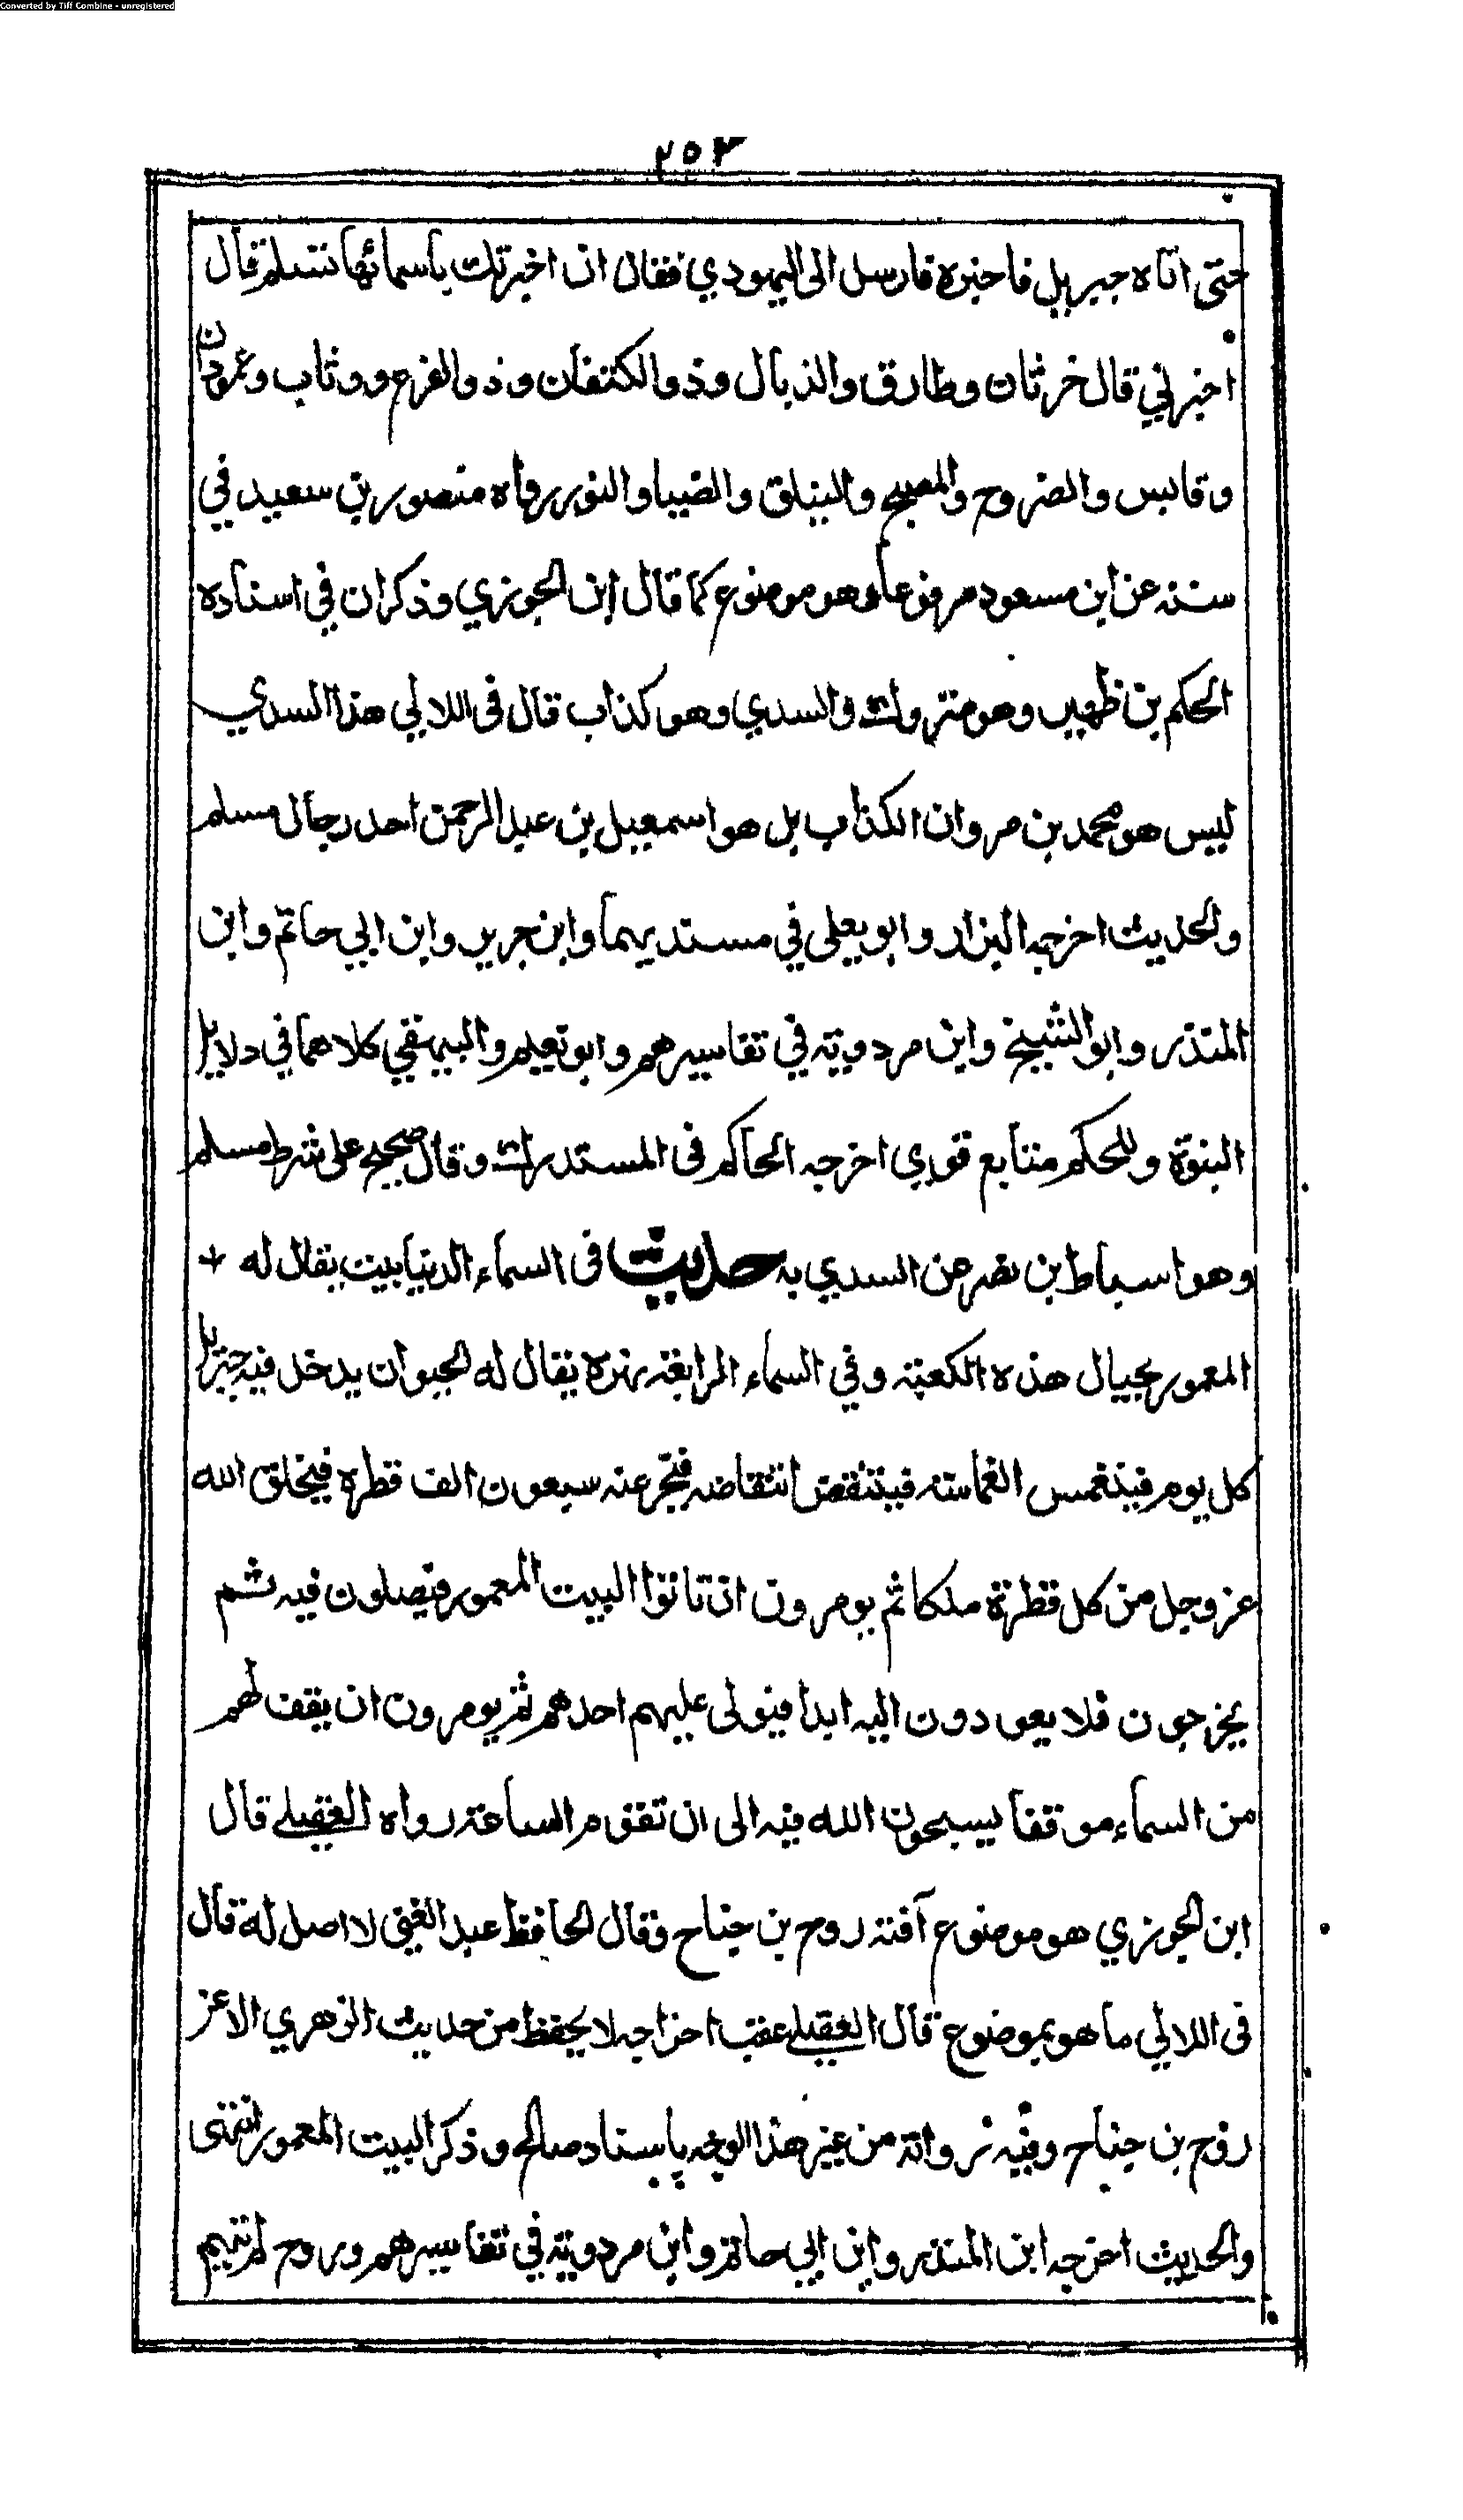 Converted by Tiff Combine - unregistered
٢٥٣
حتى اتاه جبريل فاخبره فارسل الى اليهودي فقال ان اخبرتك باسمائها تسلم قال
اخبرني قال خرثان وطارق والذيال وذو الكتفان وذو الفرع ووثاب وعمودان
وقابس والضروح والمصبح والبيلق والضيا والنور رواه منصور بن سعيد في
سننه عن ابن مسعود مرفوعا وهو موضوع كما قال ابن الجوزي وذكر ان في اسناده
الحكم بن ظهير وهو متروك والسدي وهو كذاب قال في اللالي هذا السدي
ليس هو محمد بن مروان الكذاب بل هو اسمعيل بن عبد الرحمن احد رجال مسلم
والحديث اخرجه البزار وابو يعلى في مسنديهما وابن جرير وابن ابي حاتم وابن
المنذر وابو الشيخ وابن مردويه في تفاسيرهم وابو نعيم والبيهقي كلاهما في دلايل
النبوة وللحكم متابع قوي اخرجه الحاكم في المستدرك وقال صحيح على شرط مسلم
وهو اسباط بن نصر عن السدي به حديث في السماء الدنيا بيت يقال له +
المعمور بحيال هذه الكعبة وفي السماء الرابعة نهره يقال له الحيوان يدخل فيه جبريل
كل يوم فينغمس انغماسة فينتفض انتفاضة فيخر عنه سبعون الف قطرة فيخلق الله
عز وجل من كل قطرة ملكا ثم يومرون ان تاتوا البيت المعمور فيصلون فيه ثم
يخرجون فلا يعودون اليه ابدا فيولى عليهم احدهم ثم يومرون ان يقف لهم
من السماء موقفا يسبحون الله فيه الى ان تقوم الساعة رواه العقيلي قال
ابن الجوزي هو موضوع آفته روح بن جناح وقال الحافظ عبد الغني لا اصل له قال
في اللالي ما هو بموضوع قال العقيلي عقب اخراجه لا يحفظ من حديث الزهري الا عن
روح بن جناح وفيه رواية من غير هذا الوجه باسناد صالح وذكر البيت المعمور انتهى
والحديث اخرجه ابن المنذر وابن ابي حاتم وابن مردويه في تفاسيرهم وروح لم يتهم